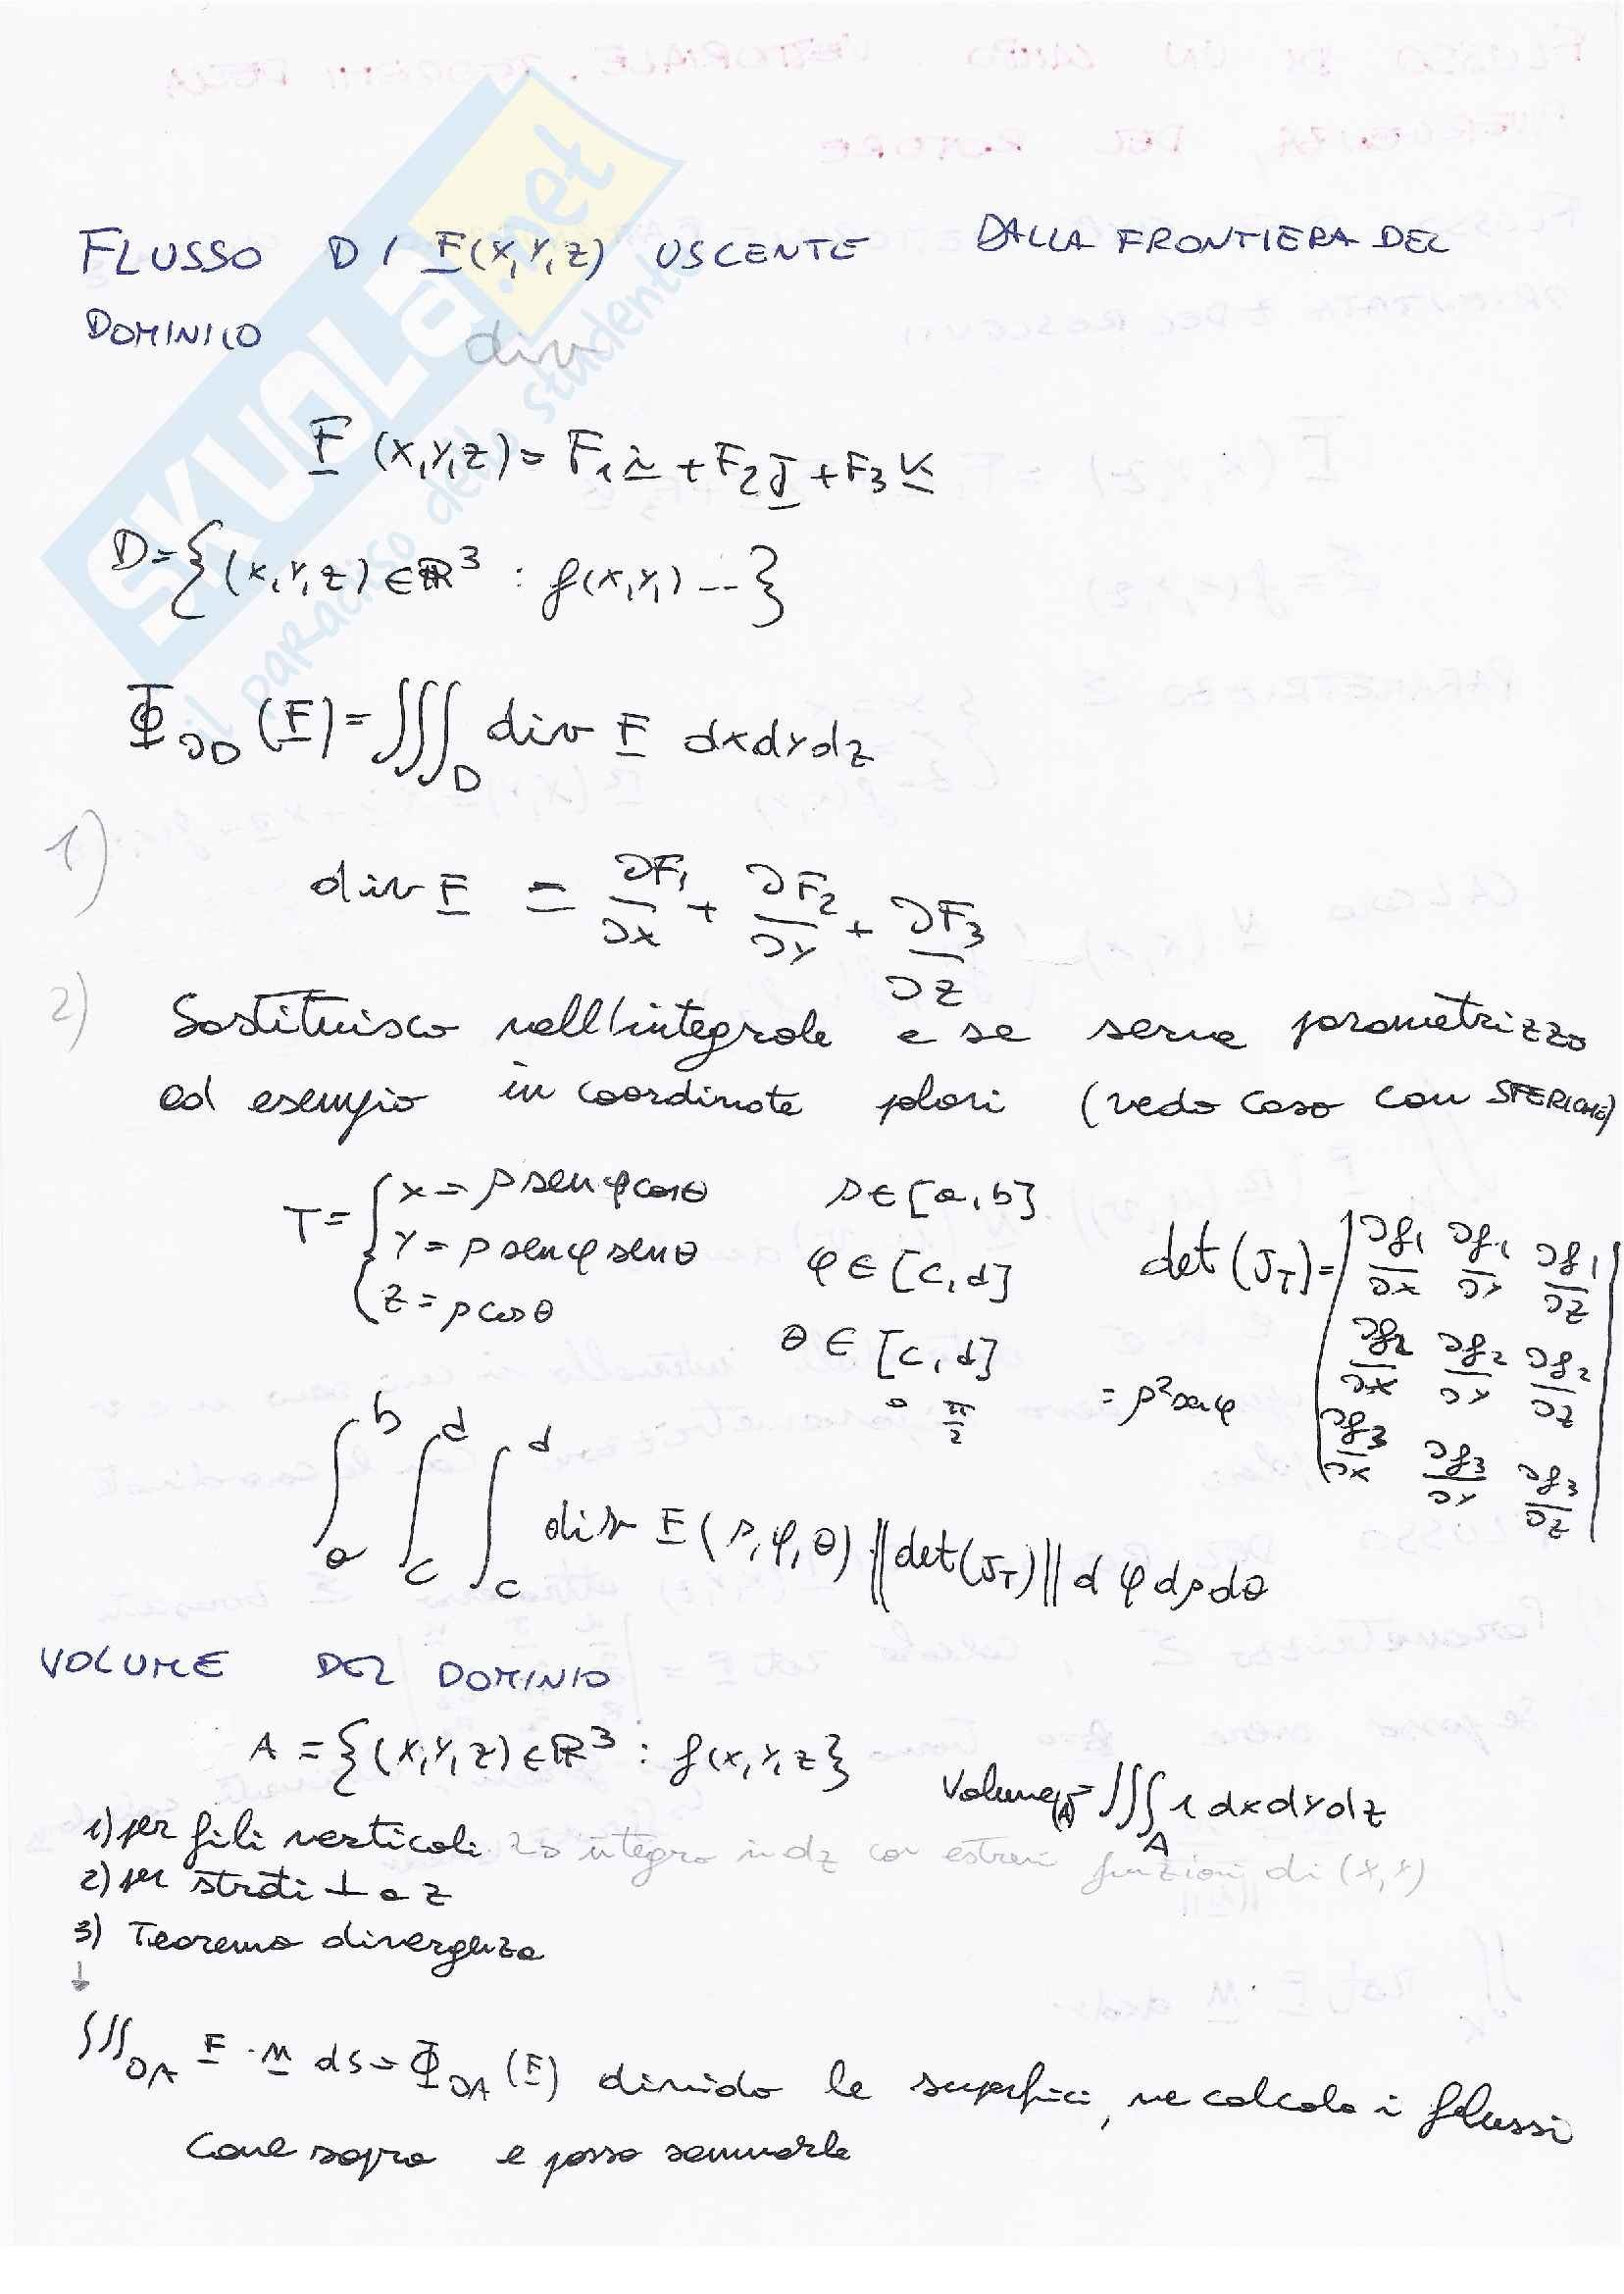 FLUSSO DI F(X,Y,Z) USCENTE DALLA FRONTIERA DEL
DOMINIO
div
F (X,Y,Z) = F₁i + F₂J + F₃K
D = {(X,Y,Z) ∈ ℝ³ : f(X,Y,) ...}
Φ∂D (F) = ∭D div F dxdydz
1)
div F = ∂F₁/∂x + ∂F₂/∂y + ∂F₃/∂z
2) Sostituisco nell'integrale e se serve parametrizzo
ad esempio in coordinate plari (vedo caso con SFERICHE)
T = { x = ρ sen φ cos θ
y = ρ sen φ sen θ
z = ρ cos θ
ρ ∈ [a, b]
φ ∈ [c, d]
θ ∈ [c, d]
0 π/2
det (J_T) = | ∂f₁/∂x ∂f₁/∂y ∂f₁/∂z
∂f₂/∂x ∂f₂/∂y ∂f₂/∂z
∂f₃/∂x ∂f₃/∂y ∂f₃/∂z |
= ρ² sen φ
∫_a^b ∫_c^d ∫_c^d div F (ρ, φ, θ) ||det(J_T)|| d φ dρ dθ
VOLUME DEL DOMINIO
A = {(X,Y,Z) ∈ ℝ³ : f(x,y,z}
Volume(A) = ∭A 1 dxdydz
1) per fili verticali => integro in dz con estremi funzioni di (x,y)
2) per strati ⊥ a z
3) Teorema divergenza
↓
∭∂A F · n ds = Φ∂A (F) divido le superfici, ne calcolo i flussi
come sopra e posso sommarle
SKUOLA.net
il paradiso dello studente